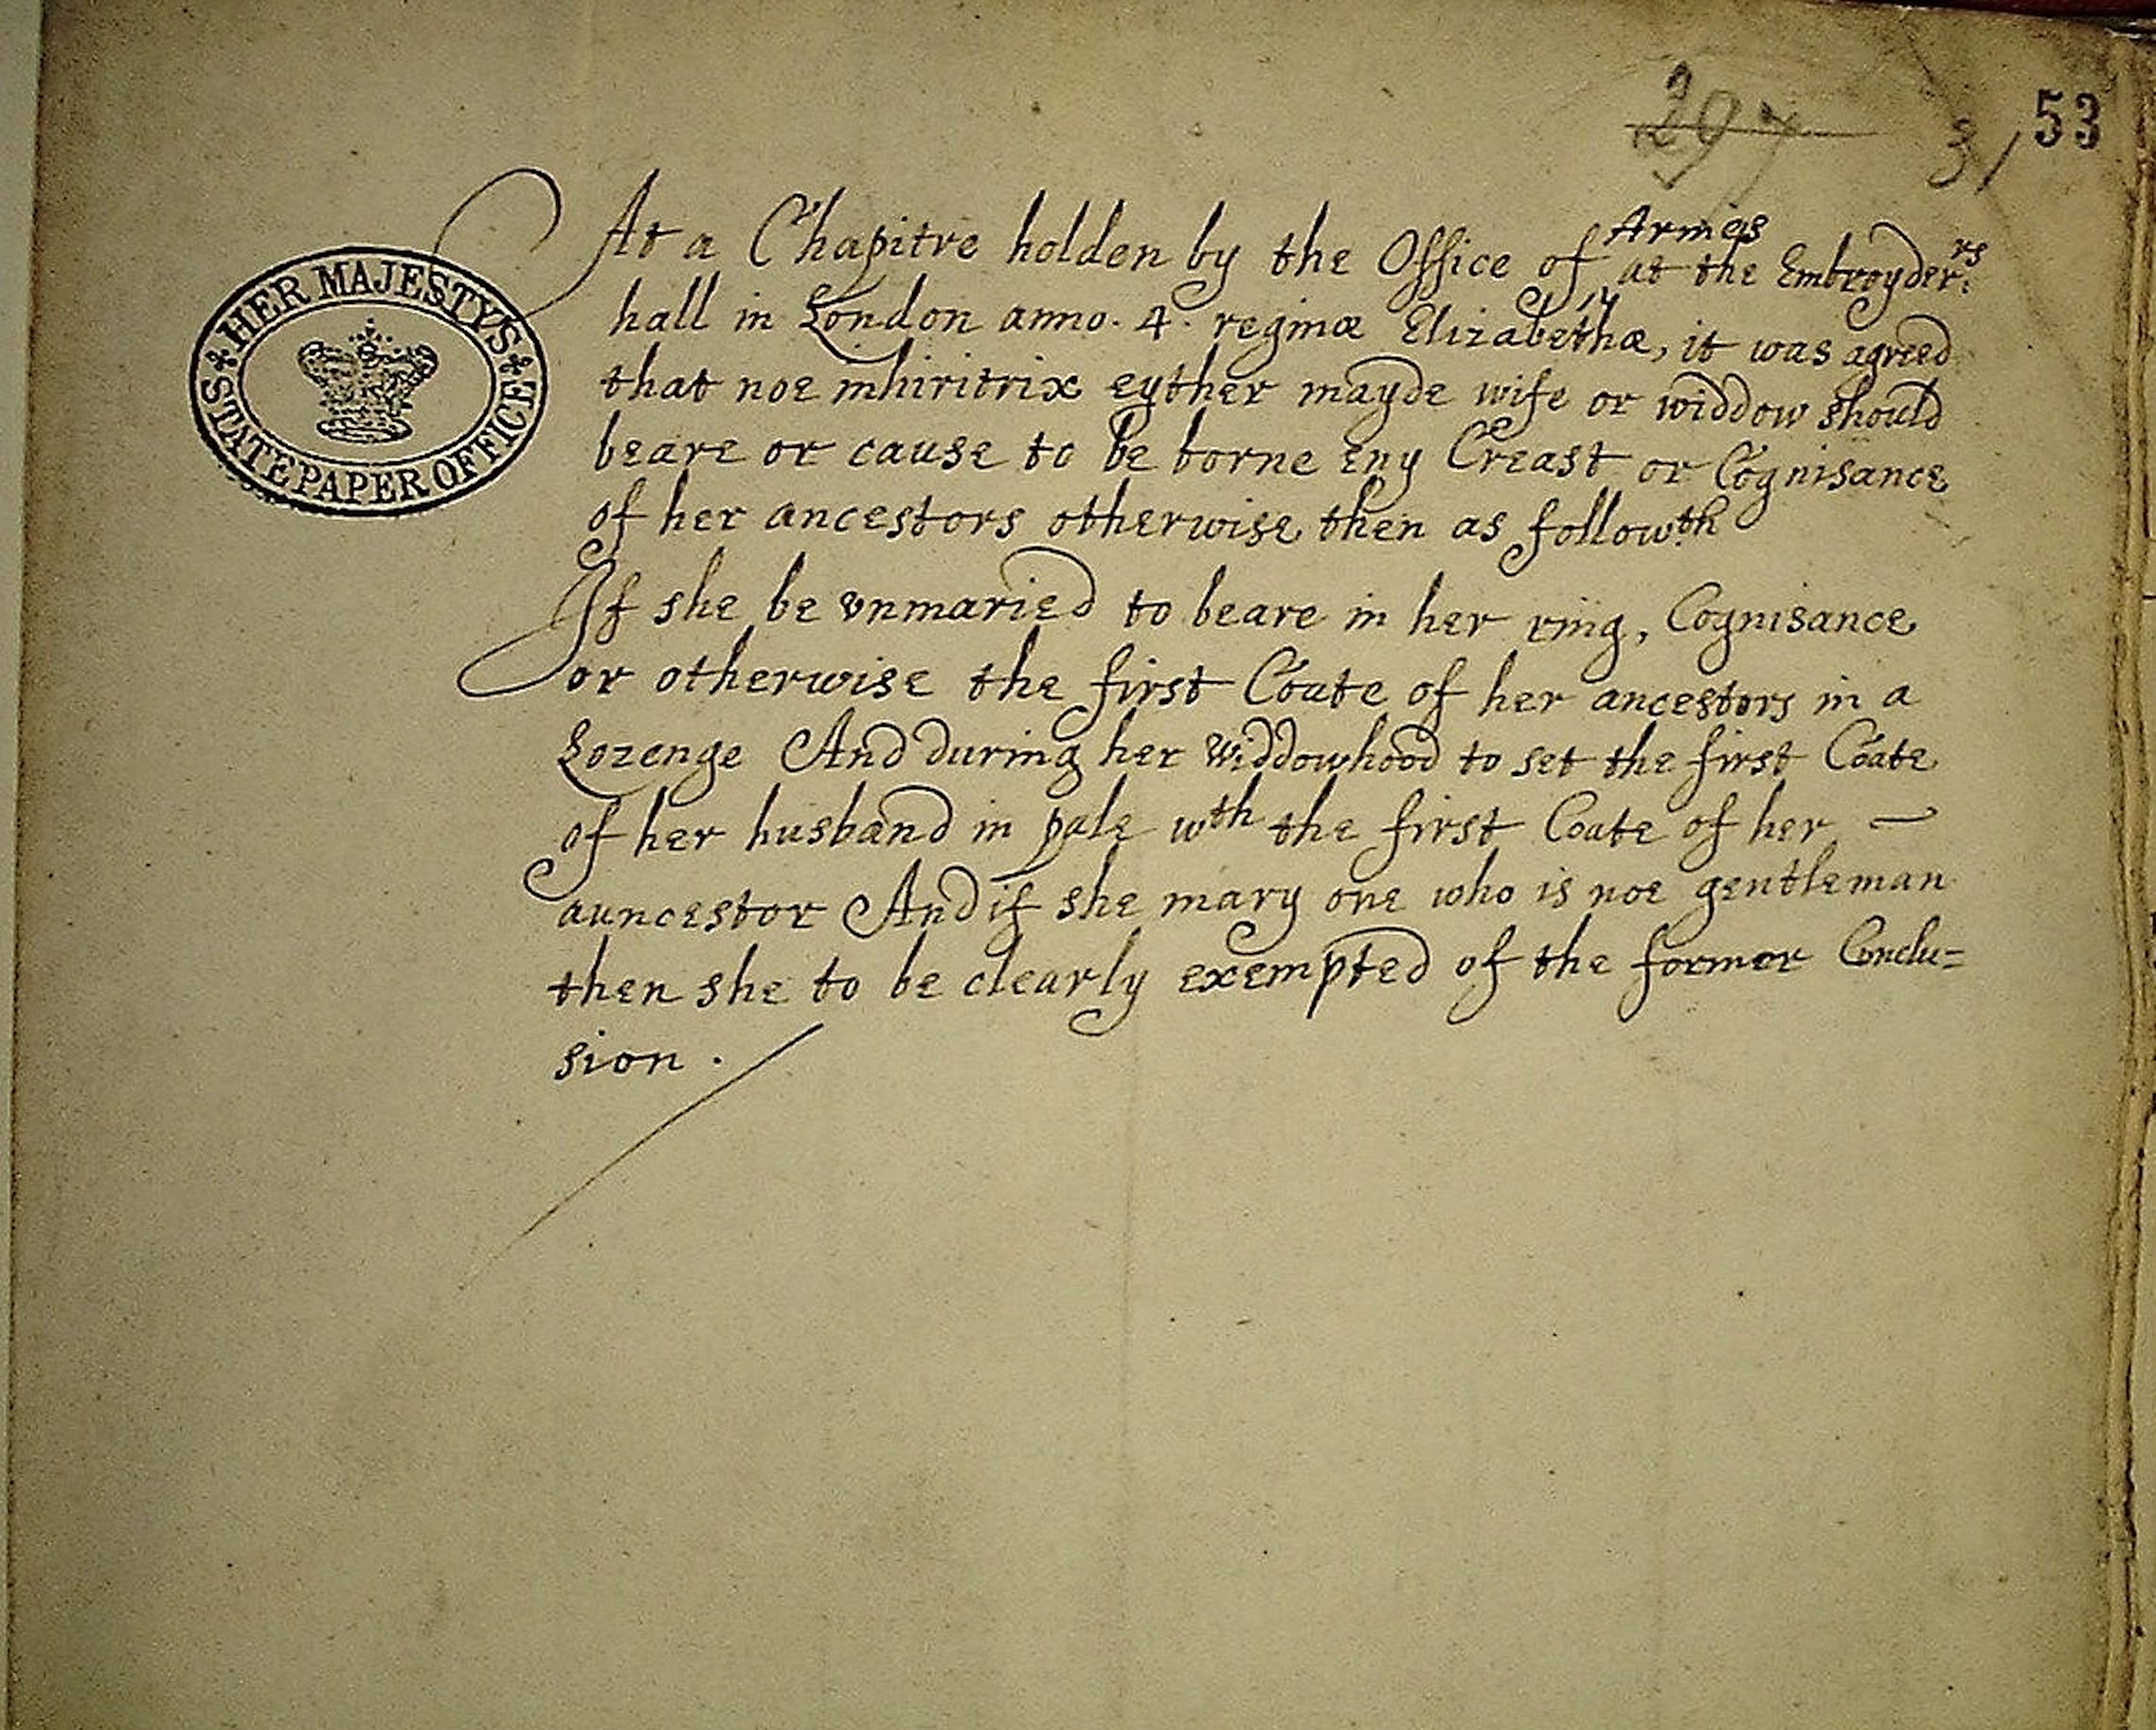 297 31/ 53
HER MAJESTY'S STATE PAPER OFFICE
At a Chapitre holden by the Office of Armes at the Embroyderrs
hall in London anno. 4. reginæ Elizabethæ, it was agreed
that noe inhiritrix eyther mayde wife or widdow should
beare or cause to be borne eny Creast or Cognisance
of her ancestors otherwise then as followth
If she be vnmaried to beare in her ring, Cognisance
or otherwise the first Coate of her ancestors in a
Lozenge And during her widdowhood to set the first Coate
of her husband in pale wth the first Coate of her
auncestor And if she mary one who is noe gentleman
then she to be clearly exempted of the former Conclu=
sion.